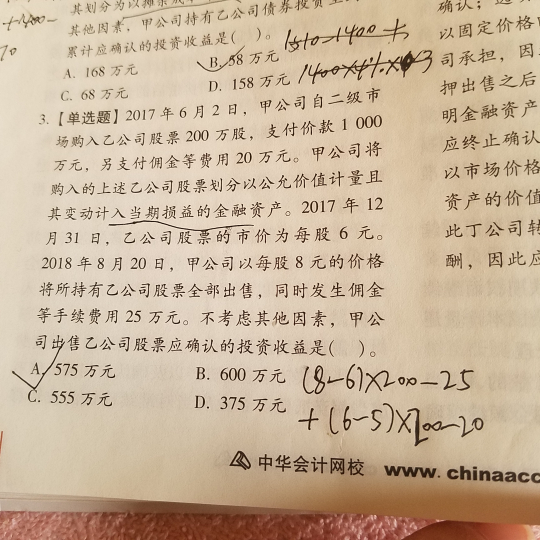 其他因素，甲公司持有乙公司债券投资
累计应确认的投资收益是(　)。
A. 168 万元
B. 58 万元
1510-1400+
C. 68 万元
D. 158 万元
1400×4%×
3.【单选题】2017 年 6 月 2 日，甲公司自二级市
场购入乙公司股票 200 万股，支付价款 1 000
万元，另支付佣金等费用 20 万元。甲公司将
购入的上述乙公司股票划分以公允价值计量且
其变动计入当期损益的金融资产。2017 年 12
月 31 日，乙公司股票的市价为每股 6 元。
2018 年 8 月 20 日，甲公司以每股 8 元的价格
将所持有乙公司股票全部出售，同时发生佣金
等手续费用 25 万元。不考虑其他因素，甲公
司出售乙公司股票应确认的投资收益是(　)。
A. 575 万元
B. 600 万元
C. 555 万元
D. 375 万元
(8-6)×200-25
+(6-5)×200-20
中华会计网校 www. chinaacc
确认；
以固定价格
司承担，因
押出售之后
明金融资产
应终止确认
以市场价格
资产的价值
此丁公司转
酬，因此应